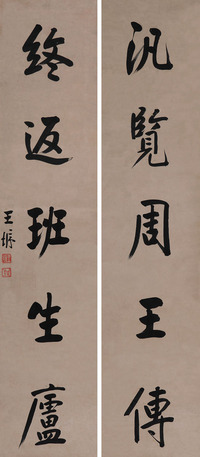 汎覽周王傳
終返班生廬
王